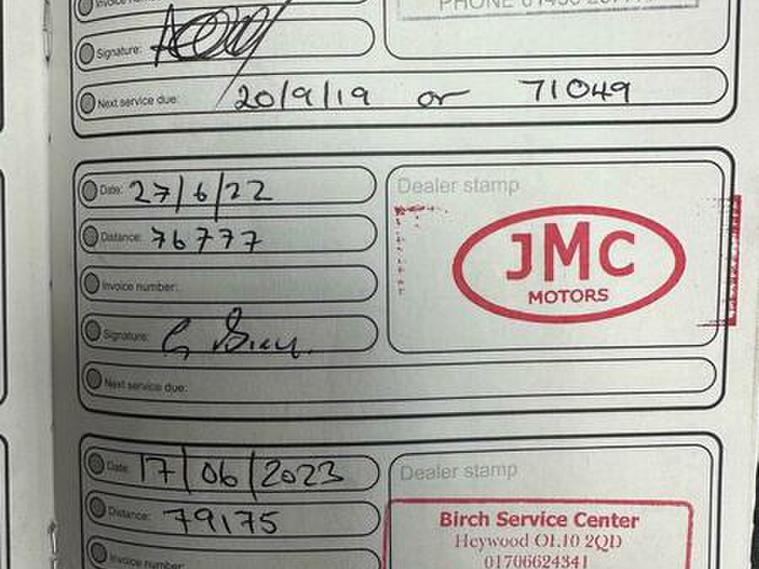 Invoice number:
Signature:
Next service due: 20/9/19 or 71049
Date: 27/6/22
Dealer stamp
Distance: 76777
JMC
MOTORS
Invoice number:
Signature:
Next service due:
Date: 17/06/2023
Dealer stamp
Distance: 79175
Birch Service Center
Heywood OL10 2QD
01706624341
Invoice number: